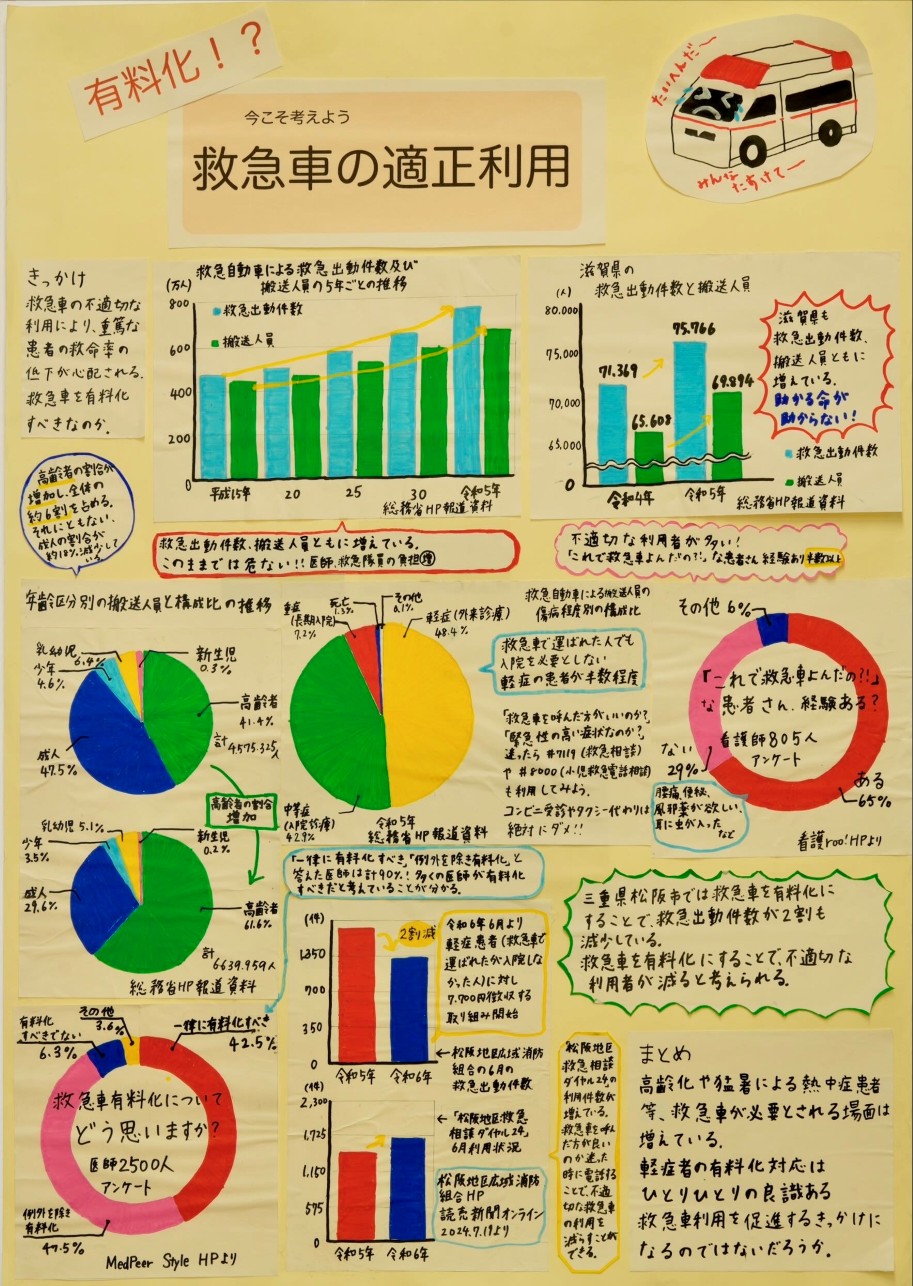 有料化！？
今こそ考えよう
救急車の適正利用
たいへんだ〜
みんな
たすけて〜
きっかけ
救急車の不適切な
利用により、重篤な
患者の救命率の
低下が心配される。
救急車を有料化
すべきなのか。
救急自動車による救急出動件数及び
搬送人員の5年ごとの推移
(万人)
800
600
400
200
0
救急出動件数
搬送人員
平成15年
20
25
30
令和5年
総務省HP報道資料
滋賀県の
救急出動件数と搬送人員
(人)
80.000
75,000
70,000
65,000
0
71.369
65.608
75.766
69.894
令和4年
令和5年
救急出動件数
搬送人員
総務省HP報道資料
滋賀県も
救急出動件数、
搬送人員ともに
増えている。
助かる命が
助からない！
高齢者の割合が
増加し、全体の
約6割を占める。
それにともない、
成人の割合が
約18%減少して
いる
救急出動件数、搬送人員ともに増えている。
このままでは危ない！！医師、救急隊員の負担増
不適切な利用者が多い！
「これで救急車よんだの?!」な患者さん経験あり半数以上
年齢区分別の搬送人員と構成比の推移
乳幼児
6.4%
少年
4.6%
新生児
0.3%
高齢者
41.4%
成人
47.5%
計
4575.325人
高齢者の割合
増加
乳幼児 5.1%
少年
3.5%
新生児
0.2%
成人
29.6%
高齢者
61.6%
計
6639.959人
総務省HP報道資料
救急自動車による搬送人員の
傷病程度別の構成比
重症
(長期入院)
7.2%
死亡
1.3%
その他
0.1%
軽症(外来診療)
48.4%
中等症
(入院診療)
42.9%
令和5年
総務省HP報道資料
救急車で運ばれた人でも
入院を必要としない
軽症の患者が半数程度
「救急車を呼んだ方がいいのか?」
「緊急性の高い症状なのか?」
迷ったら #7119(救急相談)
や #8000(小児救急電話相談)
も利用してみよう。
コンビニ受診やタクシー代わりは
絶対にダメ!!
その他 6%
「これで救急車よんだの?!」
な患者さん、経験ある?
看護師805人
アンケート
ない
29%
ある
65%
腰痛、便秘、
風邪薬が欲しい、
耳に虫が入った
など
看護roo!HPより
「一律に有料化すべき」、「例外を除き有料化」と
答えた医師は計90%！多くの医師が有料化
すべきだと考えていることが分かる。
三重県松阪市では救急車を有料化に
することで、救急出動件数が2割も
減少している。
救急車を有料化にすることで、不適切な
利用者が減ると考えられる。
有料化
すべきでない
6.3%
その他
3.6%
一律に有料化すべき
42.5%
救急車有料化について
どう思いますか?
医師2500人
アンケート
例外を除き
有料化
47.5%
MedPeer Style HPより
(件)
1350
700
350
0
2割減
令和5年
令和6年
令和6年6月より
軽症患者(救急車で
運ばれたが入院しな
かった人)に対し
7.700円徴収する
取り組み開始
←松阪地区広域消防
組合の6月の
救急出動件数
(件)
2,300
1.725
1.150
575
0
令和5年
令和6年
←「松阪地区救急
相談ダイヤル24」
6月利用状況
松阪地区広域消防
組合HP
読売新聞オンライン
2024.7.17より
松阪地区
救急相談
ダイヤル24の
利用件数が
増えている。
救急車を呼ん
だ方が良い
のか迷った
時に電話する
ことで、不適
切な救急車
の利用を
減らすことが
できる。
まとめ
高齢化や猛暑による熱中症患者
等、救急車が必要とされる場面は
増えている。
軽症者の有料化対応は
ひとりひとりの良識ある
救急車利用を促進するきっかけに
なるのではないだろうか。